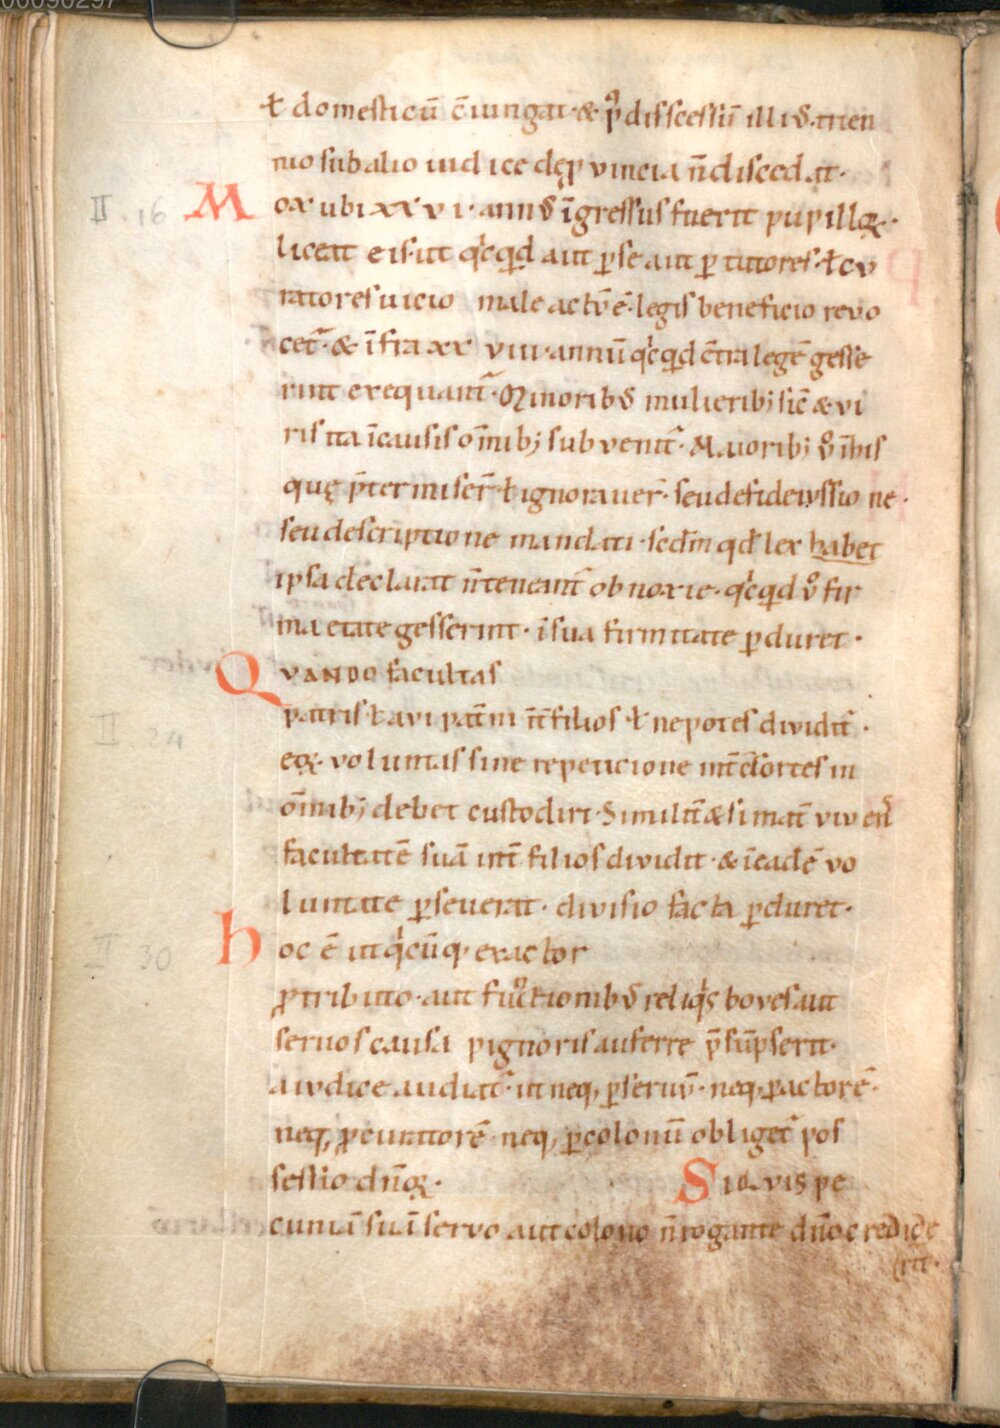 00090297
ł domesticū c̄iungat · & p᷒ discessū illiꝰ · trien
nio sub alio iudice de ꝓvincia n̄ discedat ·
II · 16 Mox ubi xxvi · annꝰ īgressus fuerit pupilloꝝ ·
liceat eis · ut qͥcqͥd aut ꝑ se aut ꝑ tutores · ł cu
ratores vicio male actū ē · legis beneficio revo
cet᷑ · & īfra xx viiii · annū qͥcqͥd c̄tra legē gesse
rint exequant᷑ · Minoribꝰ mulieribꝫ sic̄ & vi
ris ita ī causis om̄ibꝫ subvenit᷑ · Maioribꝫ v̊ ī his
quę p̄termiser̄ ł ignoraver̄ · seu de fideiussione ·
seu descriptione mandati · sed m̄ qd̄ lex habet
ipsa declarat n̄ teneant᷑ obnoxie · qͥcqͥd v̊ fir
ma etate gesserint · ī sua firmitate ꝑduret ·
Quando facultas
II 24 patris ł avi pat̄ni int̄ filios ł nepotes dividit᷑ ·
eoꝝ · voluntas sine repeticione int̄ c̄sortes in
om̄ibꝫ debet custodiri · Similit̄ & si mat̄ vivens
facultatē suā int̄ filios dividit · & ī eadē vo
luntate ꝑseverat · divisio facta ꝑduret ·
II 30 hoc ē ut qͥcūqꝫ exactor
ꝓ tributo · aut functionibꝰ reliqͥs boves aut
servos causa pignoris auferre p̄sūpserit ·
a iudice audiat᷑ · ut neqꝫ ꝑ servū · neqꝫ ꝑ actorē ·
neqꝫ ꝓcuratorē neqꝫ ꝑ colonū obliget᷑ pos
sessio dn̄oꝝ · Si q̇vis pe
cuniā suā servo aut colono n̄ rogante dn̄o credide
rit ·